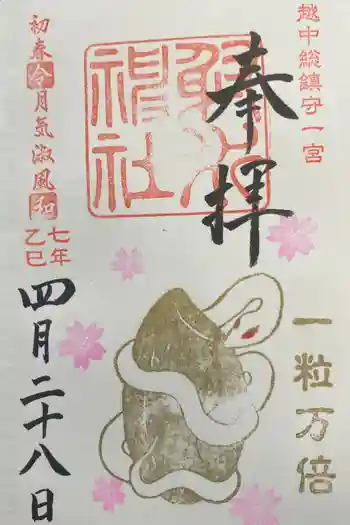 越中総鎮守一宮
奉拝
射水神社
一粒万倍
初春令月気淑風和
七年
乙巳
四月二十八日